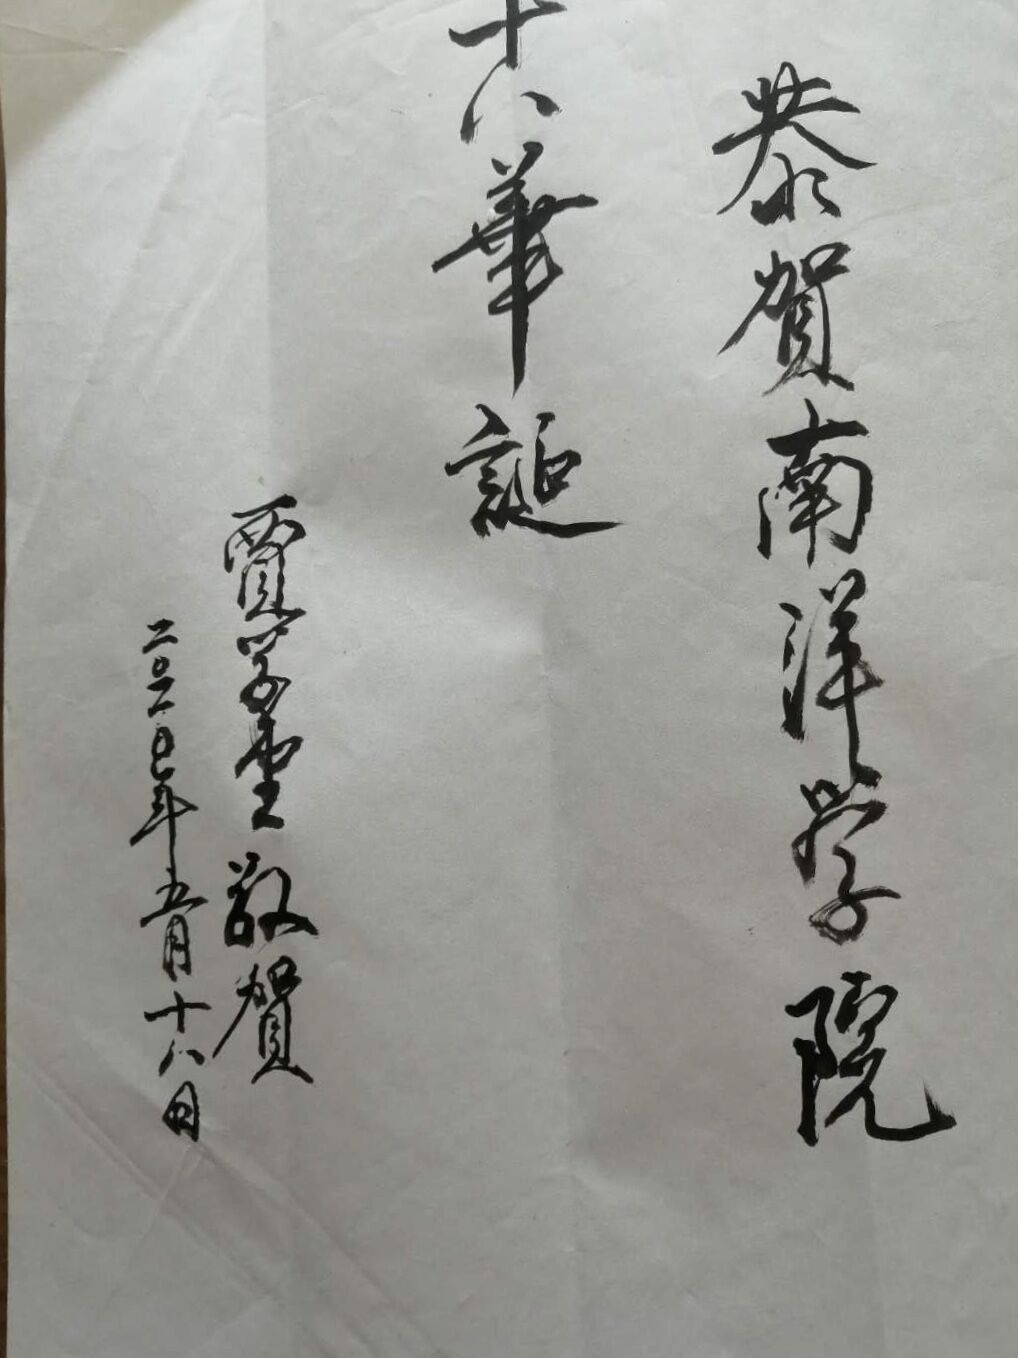 恭賀南洋学院
十八華誕
賈学聖敬賀
二〇二〇年五月十八日